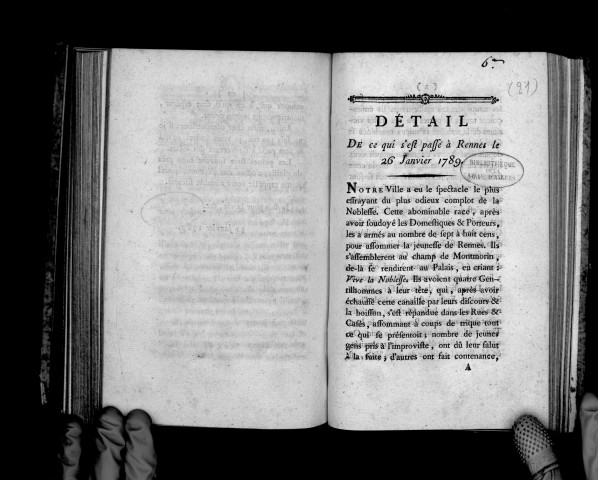 6
(1)
(21)
DÉTAIL
DE ce qui s'est passé à Rennes le
26 Janvier 1789.
BIBLIOTHÈQUE
NOTRE Ville a eu le spectacle le plus
effrayant du plus odieux complot de la
Noblesse. Cette abominable race, après
avoir soudoyé les Domestiques & Porteurs,
les a armés au nombre de sept à huit cens,
pour assommer la jeunesse de Rennes. Ils
s'assemblerent au champ de Montmorin,
de-là se rendirent au Palais, en criant :
Vive la Noblesse. Ils avoient quatre Gen-
tilshommes à leur tête, qui, après avoir
échauffé cette canaille par leurs discours &
la boisson, s'est répandue dans les Rues &
Cafés, assommant à coups de trique tout
ce qui se présentoit ; nombre de jeunes
gens pris à l'improviste, ont dû leur salut
à la fuite ; d'autres ont fait contenance,
A